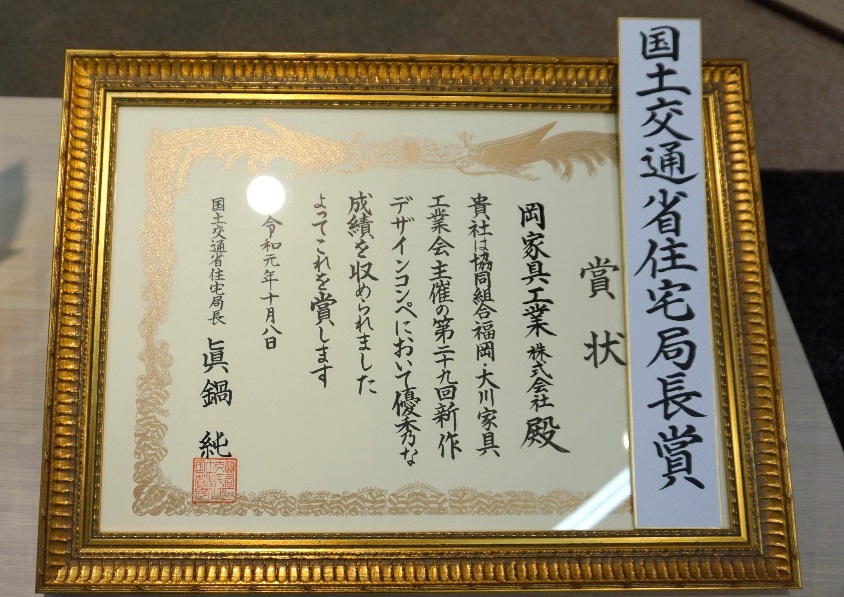 国土交通省住宅局長賞
賞状
岡家具工業 株式会社 殿
貴社は協同組合福岡・大川家具
工業会主催の第二十九回新作
デザインコンペにおいて優秀な
成績を収められました
よってこれを賞します
令和元年十月八日
国土交通省住宅局長 眞鍋 純